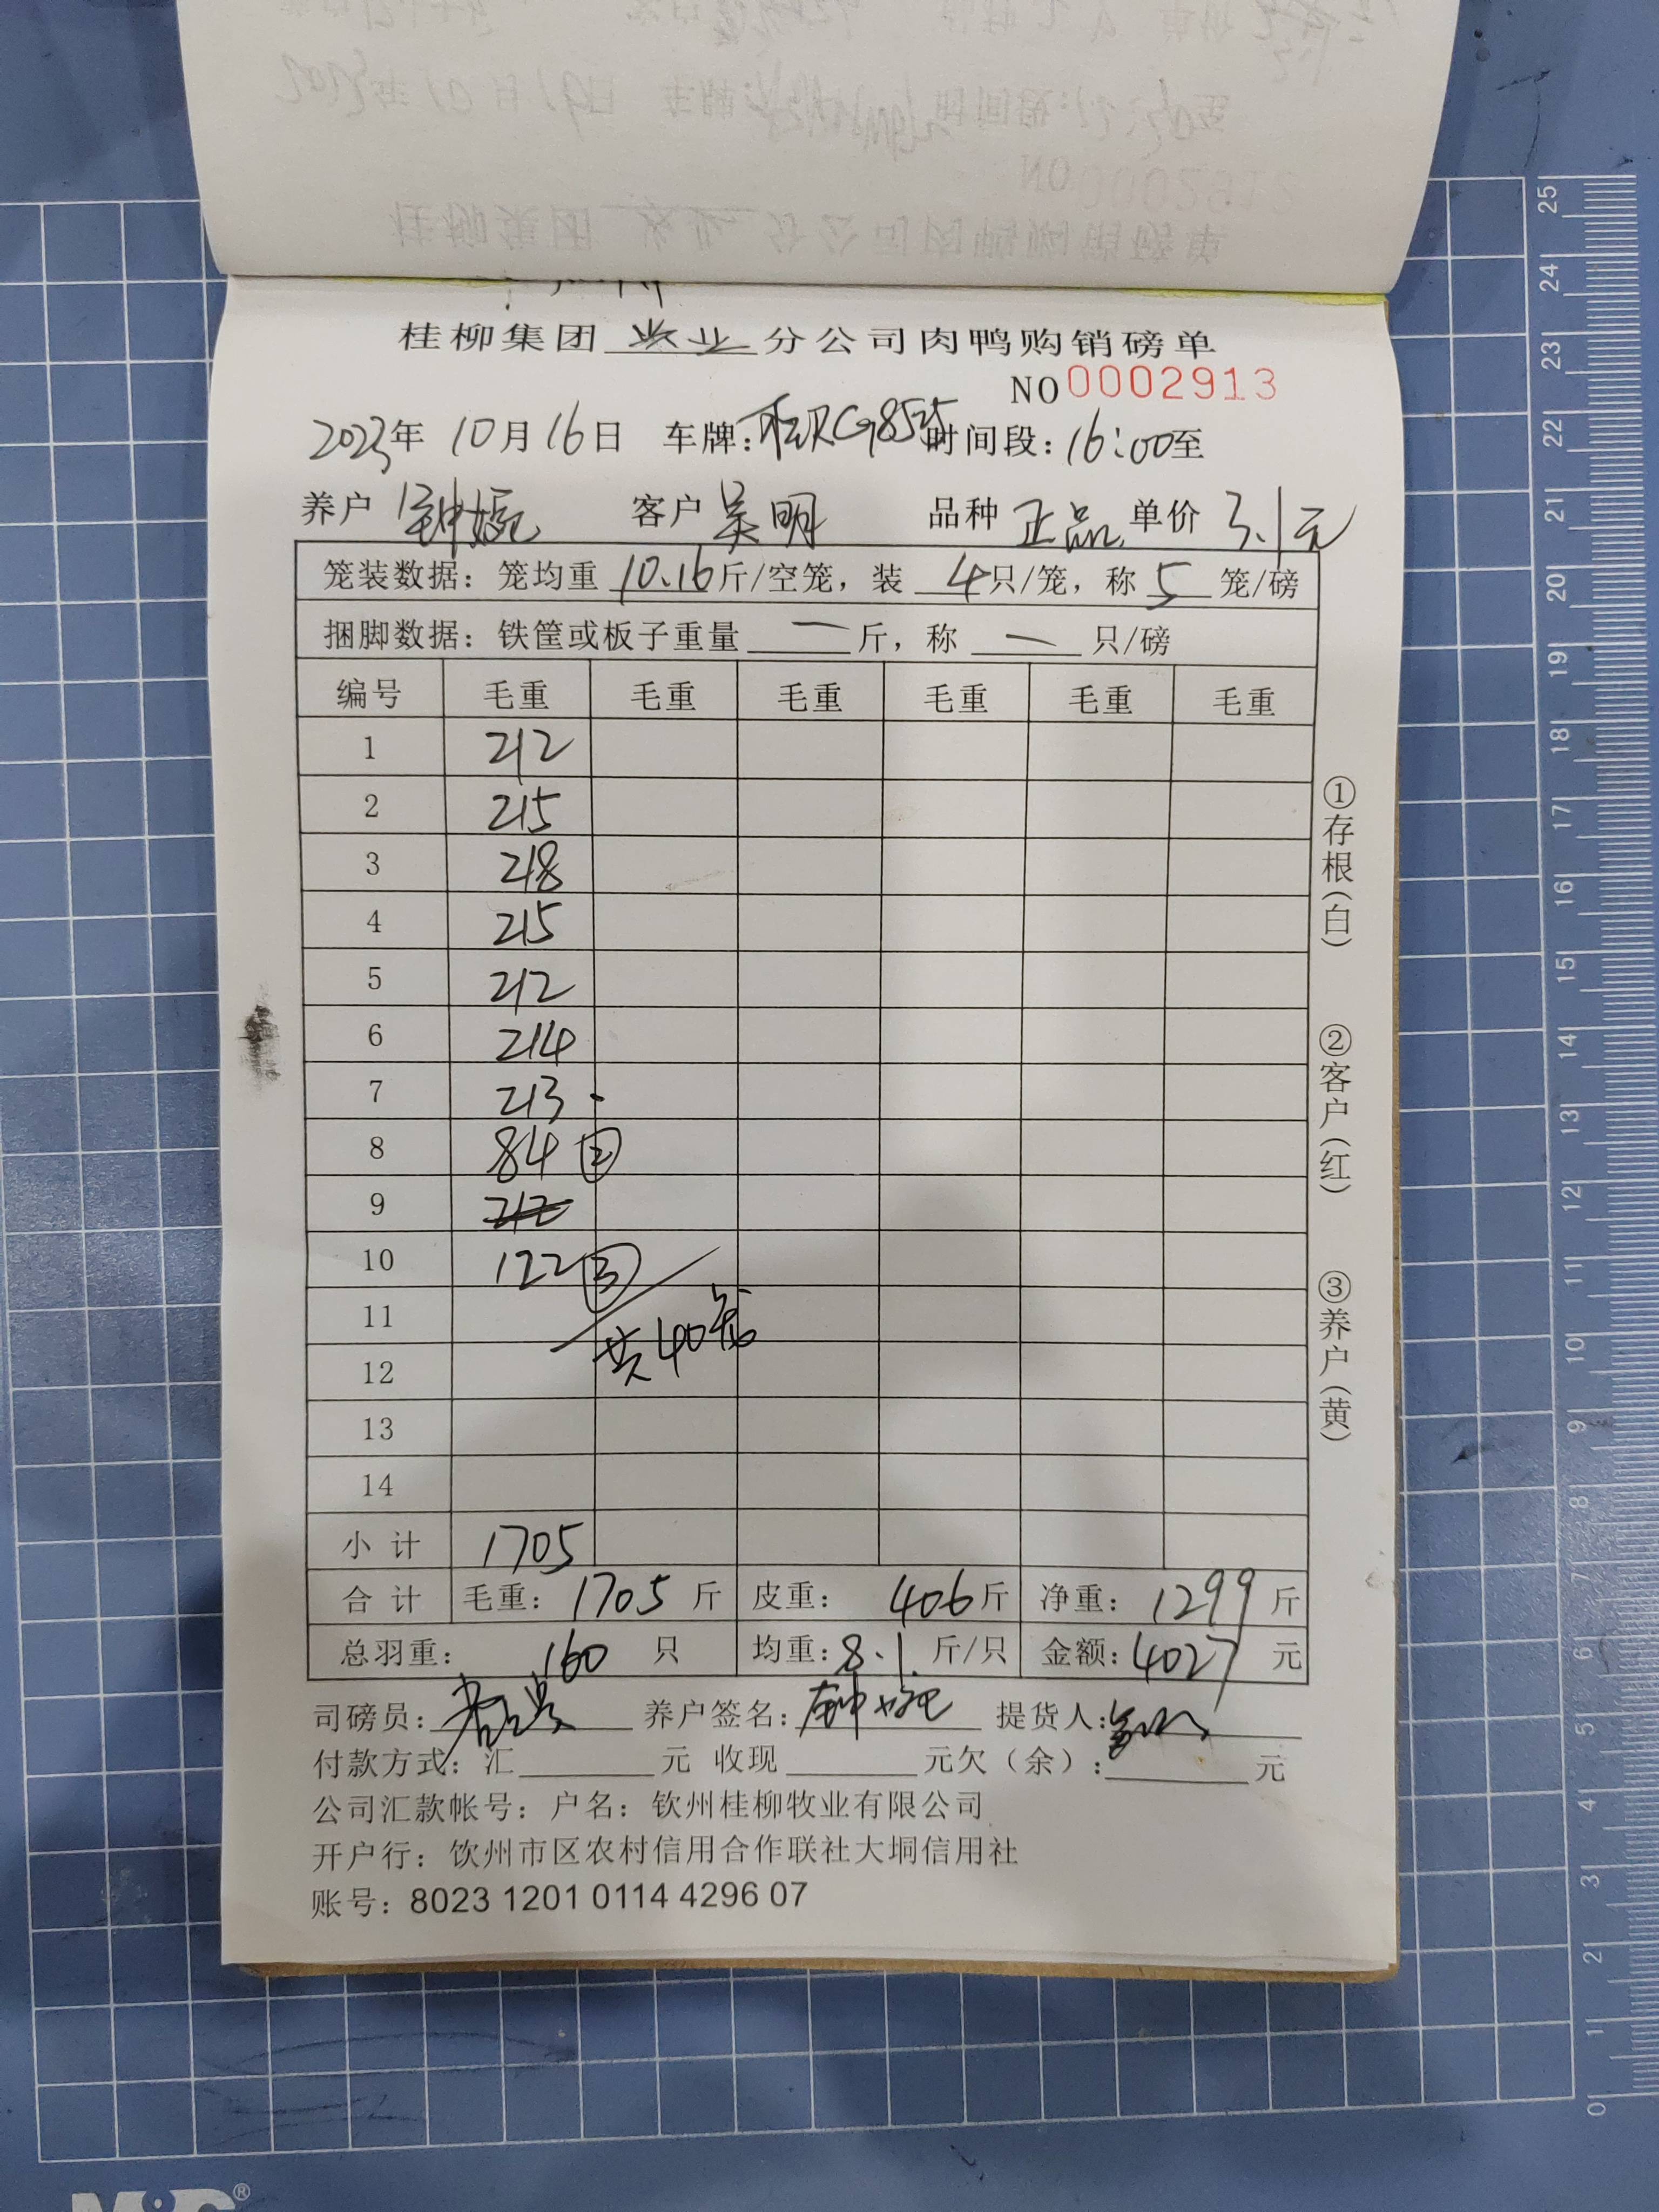 桂柳集团 兴业 分公司肉鸭购销磅单
NO 0002913
2023年 10月16日 车牌:桂RG85 时间段:16:00至
养户 钟婉 客户 吴明 品种 正品 单价 3.1元
笼装数据:笼均重 10.16斤/空笼,装 4只/笼,称 5 笼/磅
捆脚数据:铁筐或板子重量 一 斤,称 一 只/磅
编号 毛重 毛重 毛重 毛重 毛重 毛重
1 212
2 215
3 218
4 215
5 212
6 214
7 213
8 84 ②
9 212
10 122 ③
11
共40笼
12
13
14
小计 1705
合计 毛重:1705 斤 皮重:406斤 净重:1299 斤
总羽重:160 只 均重:8.1 斤/只 金额:4027 元
司磅员: 养户签名:钟婉 提货人:
付款方式:汇 元 收现 元欠(余): 元
公司汇款帐号:户名:钦州桂柳牧业有限公司
开户行:钦州市区农村信用合作联社大垌信用社
账号:8023 1201 0114 4296 07
①存根(白)
②客户(红)
③养户(黄)
25
24
23
22
21
20
19
18
17
16
15
14
13
12
11
10
9
8
7
6
5
4
3
2
1
0